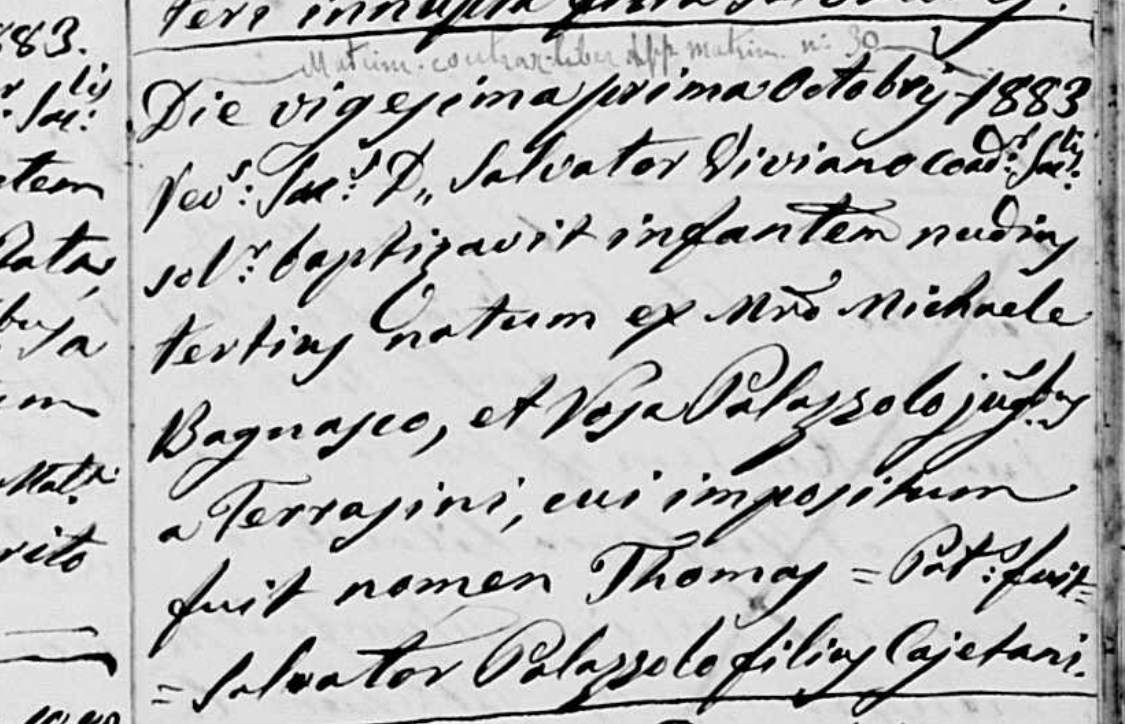 883.
tem
rito
Matrim. contrax. liber App. matrim. n: 30
Die vigesima prima Octobris 1883
Rev.s: Sac.s: D., Salvator Viviano coad.r: Sac.lis:
sol.r: baptizavit infantem nudius
tertius natum ex Mrõ Michaele
Bagnasco, et Rosa Palazzolo jug.bus
a Terrasini, cui impositum
fuit nomen Thomas = Pat.s: fuit=
= Salvator Palazzolo filius Cajetani.